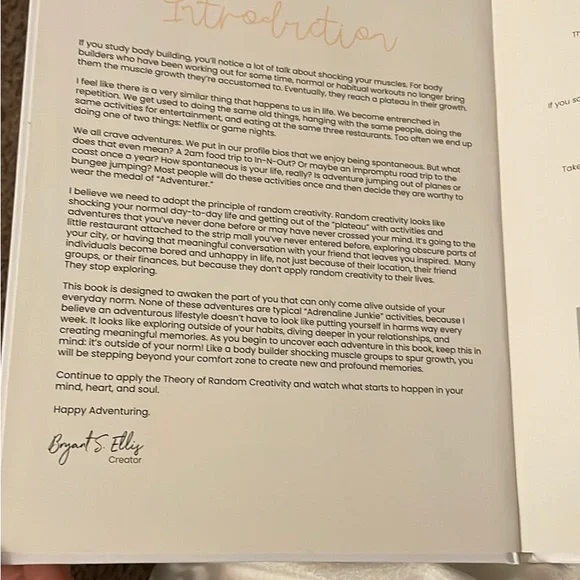 Introduction
If you study body building, you'll notice a lot of talk about shocking your muscles. For body
builders who have been working out for some time, normal or habitual workouts no longer bring
them the muscle growth they're accustomed to. Eventually, they reach a plateau in their growth.
I feel like there is a very similar thing that happens to us in life. We become entrenched in
repetition. We get used to doing the same old things, hanging with the same people, doing the
same activities for entertainment, and eating at the same three restaurants. Too often we end up
doing one of two things: Netflix or game nights.
We all crave adventures. We put in our profile bios that we enjoy being spontaneous. But what
does that even mean? A 2am food trip to In-N-Out? Or maybe an impromptu road trip to the
coast once a year? How spontaneous is your life, really? Is adventure jumping out of planes or
bungee jumping? Most people will do these activities once and then decide they are worthy to
wear the medal of "Adventurer."
I believe we need to adopt the principle of random creativity. Random creativity looks like
shocking your normal day-to-day life and getting out of the "plateau" with activities and
adventures that you've never done before or may have never crossed your mind. It's going to the
little restaurant attached to the strip mall you've never entered before, exploring obscure parts of
your city, or having that meaningful conversation with your friend that leaves you inspired. Many
individuals become bored and unhappy in life, not just because of their location, their friend
groups, or their finances, but because they don't apply random creativity to their lives.
They stop exploring.
This book is designed to awaken the part of you that can only come alive outside of your
everyday norm. None of these adventures are typical "Adrenaline Junkie" activities, because I
believe an adventurous lifestyle doesn't have to look like putting yourself in harms way every
week. It looks like exploring outside of your habits, diving deeper in your relationships, and
creating meaningful memories. As you begin to uncover each adventure in this book, keep this in
mind: it's outside of your norm! Like a body builder shocking muscle groups to spur growth, you
will be stepping beyond your comfort zone to create new and profound memories.
Continue to apply the Theory of Random Creativity and watch what starts to happen in your
mind, heart, and soul.
Happy Adventuring.
Bryant S. Ellis
Creator
If you
Take